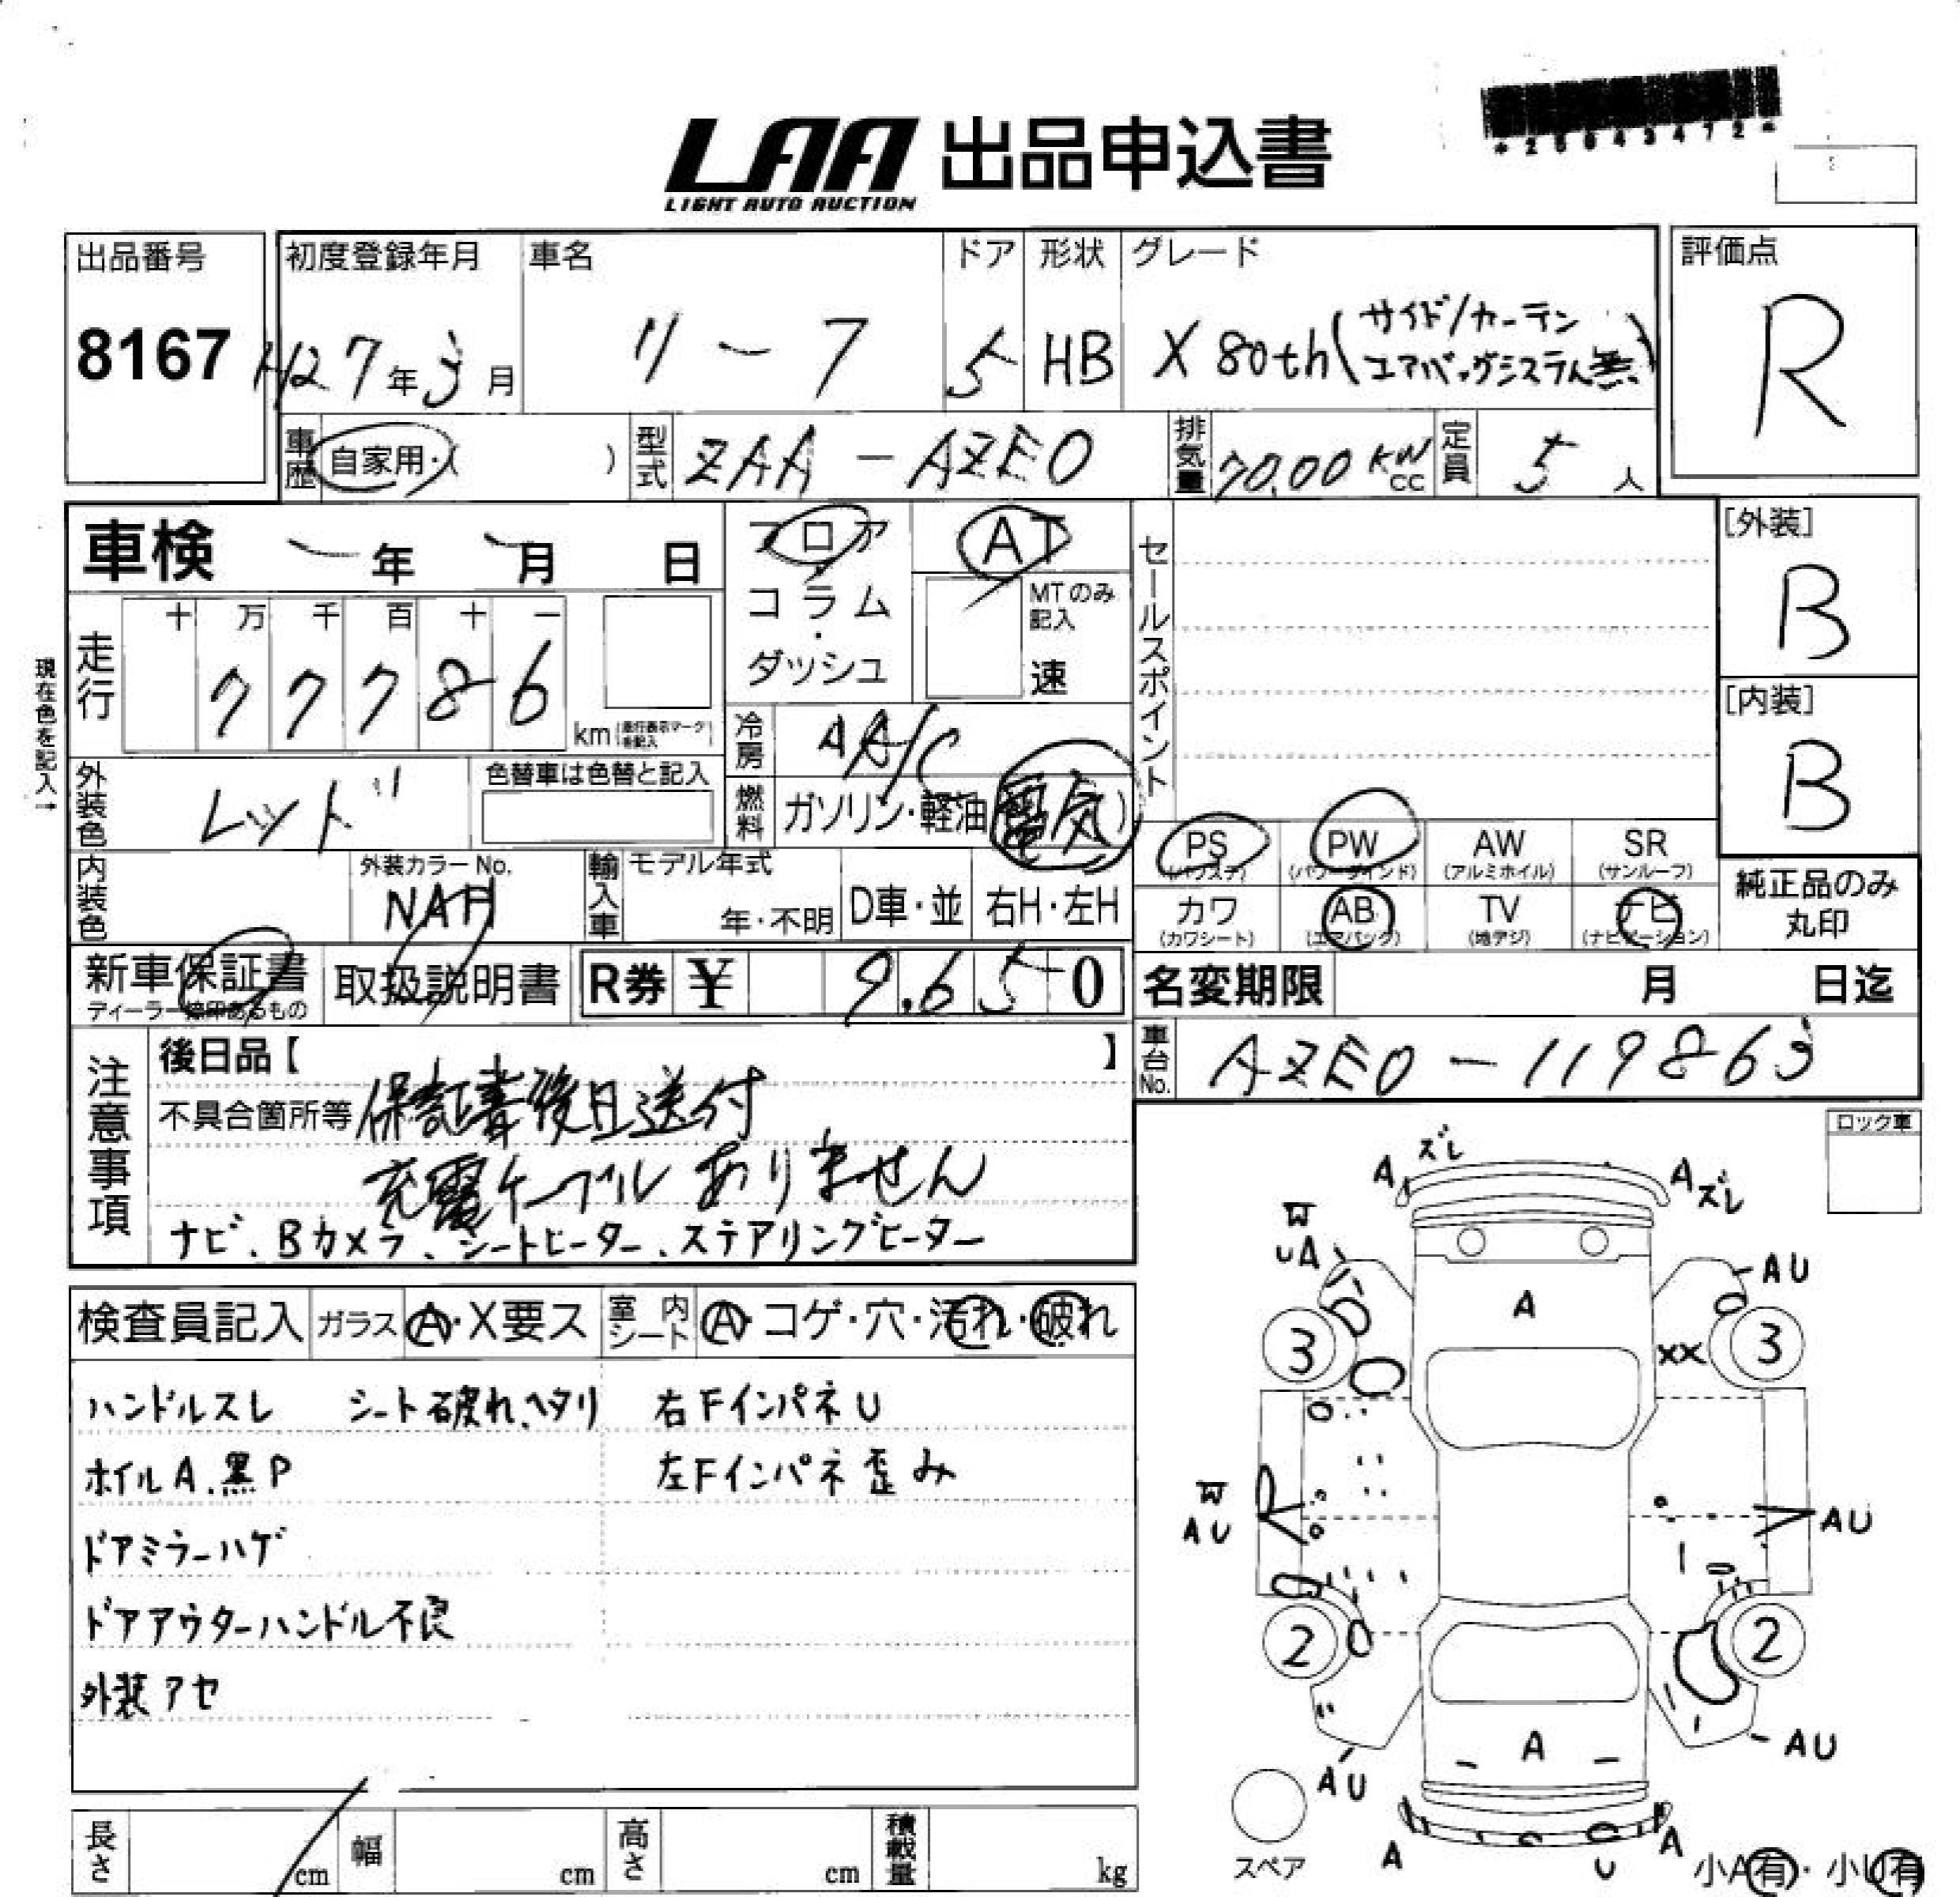 *25843472*
LAA 出品申込書
LIGHT AUTO AUCTION
出品番号 初度登録年月 車名 ドア 形状 グレード 評価点
8167 H27年3月 リーフ 5 HB X 80th(サイド/カーテン
エアバッグシステム無) R
車歴 自家用・( ) 型式 ZAA-AZE0 排気量 70.00 KW cc 定員 5人
車検 年 月 日 フロア AT セールスポイント [外装]
コラム MTのみ記入 B
・
ダッシュ 速
走行 十 万 千 百 十 一
77786 km [内装]
現在色を記入→
冷房 AA/C B
外装色 レッド 色替車は色替と記入 燃料 ガソリン・軽油(電気)
PS PW AW SR
(パワステ) (パワーウインド) (アルミホイル) (サンルーフ)
内装色 外装カラーNo. 輸入車 モデル年式 純正品のみ
NAH 年・不明 D車・並 右H・左H 丸印
カワ AB TV ナビ
(カワシート) (エアバッグ) (地デジ) (ナビゲーション)
新車保証書 取扱説明書 R券 ¥ 9,650 名変期限 月 日迄
ディーラー捺印あるもの
車台No. AZE0-119863
注意事項 後日品【 】
不具合箇所等 保証書後日送付
充電ケーブルありません
ナビ、Bカメラ、シートヒーター、ステアリングヒーター
ロック車
検査員記入 ガラス A・X要ス 室内シート A・コゲ・穴・汚れ・破れ
ハンドルスレ シート破れ、ヘタリ 右FインパネU
ホイルA.黒P 左Fインパネ歪み
ドアミラーハゲ
ドアアウターハンドル不良
外装アセ
ズレ
A A ズレ
W
UA AU
A
3 XX 3
W
AU AU
2 2
A AU
AU
スペア A U A 小A有・小U有
長さ cm 幅 cm 高さ cm 積載量 kg